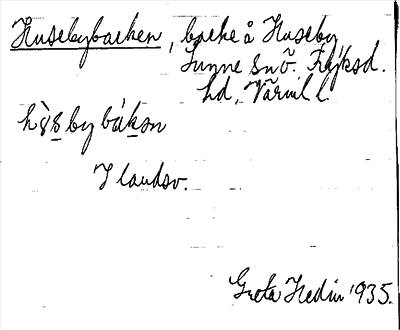 Husebybacken, backe å Huseby
Sunne snö. Fryksd.
hd, Värml l.
h
I landsv.
Greta Hedin 1935.